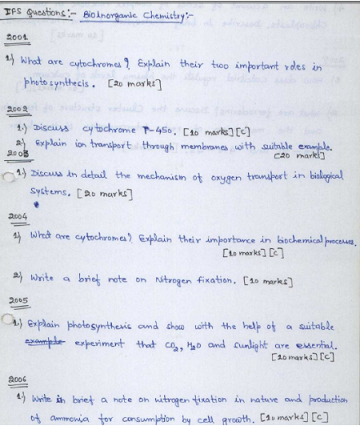 IFS Questions:- BioInorganic Chemistry:-
2001
1) What are cytochromes? Explain their two important roles in
photosynthesis. [20 marks]
2002
1) Discuss cytochrome P-450. [10 marks] [C]
2) Explain ion transport through membranes with suitable example.
[20 marks]
2003
1) Discuss in detail the mechanism of oxygen transport in biological
systems. [20 marks]
2004
1) What are cytochromes? Explain their importance in biochemical processes.
[10 marks] [C]
2) Write a brief note on Nitrogen fixation. [10 marks]
2005
1) Explain photosynthesis and show with the help of a suitable
example experiment that CO2, H2O and sunlight are essential.
[10 marks] [C]
2006
1) Write in brief a note on nitrogen fixation in nature and production
of ammonia for consumption by cell growth. [10 marks] [C]